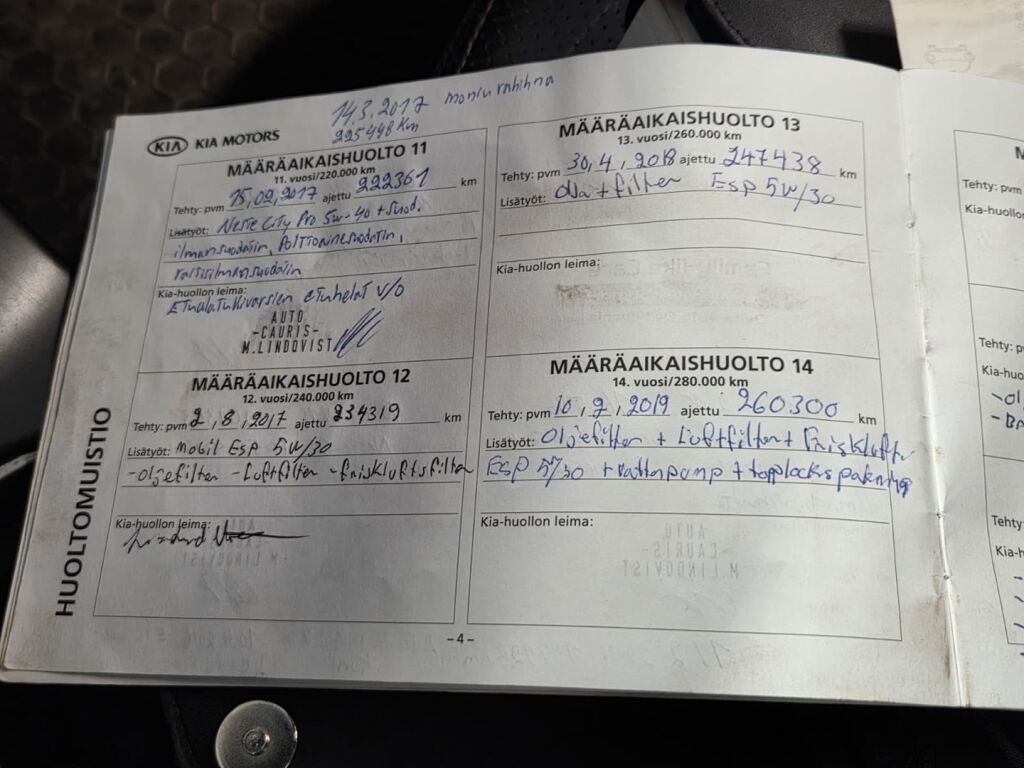 14.3.2017 moniurahihna
225448 Km
KIA KIA MOTORS
MÄÄRÄAIKAISHUOLTO 11
11. vuosi/220.000 km
Tehty: pvm 15,02,2017 ajettu 222361 km
Lisätyöt: Neste City Pro 5w-40 + suod.
ilmansuodatin, Polttoainesuodatin,
raitisilmansuodatin
Kia-huollon leima:
Etualatukivarsien etuhelat v/o
AUTO
-CAURIS-
M.LINDQVIST
MÄÄRÄAIKAISHUOLTO 12
12. vuosi/240.000 km
Tehty: pvm 2,8,2017 ajettu 234319 km
Lisätyöt: Mobil ESP 5W/30
-oljefilter -Luftfilter -friskluftsfilter
Kia-huollon leima:
MÄÄRÄAIKAISHUOLTO 13
13. vuosi/260.000 km
Tehty: pvm 30,4,2018 ajettu 247438 km
Lisätyöt: Olja + filter ESP 5W/30
Kia-huollon leima:
MÄÄRÄAIKAISHUOLTO 14
14. vuosi/280.000 km
Tehty: pvm 10,2,2019 ajettu 260300 km
Lisätyöt: Oljefilter + Luftfilter + Friskluft
ESP 5W/30 + vattenpump + topplockspakning
Kia-huollon leima:
HUOLTOMUISTIO
-4-
Tehty: pvm
Kia-huo
Tehty: p
Kia-huo
-BA
Tehty:
Kia-h